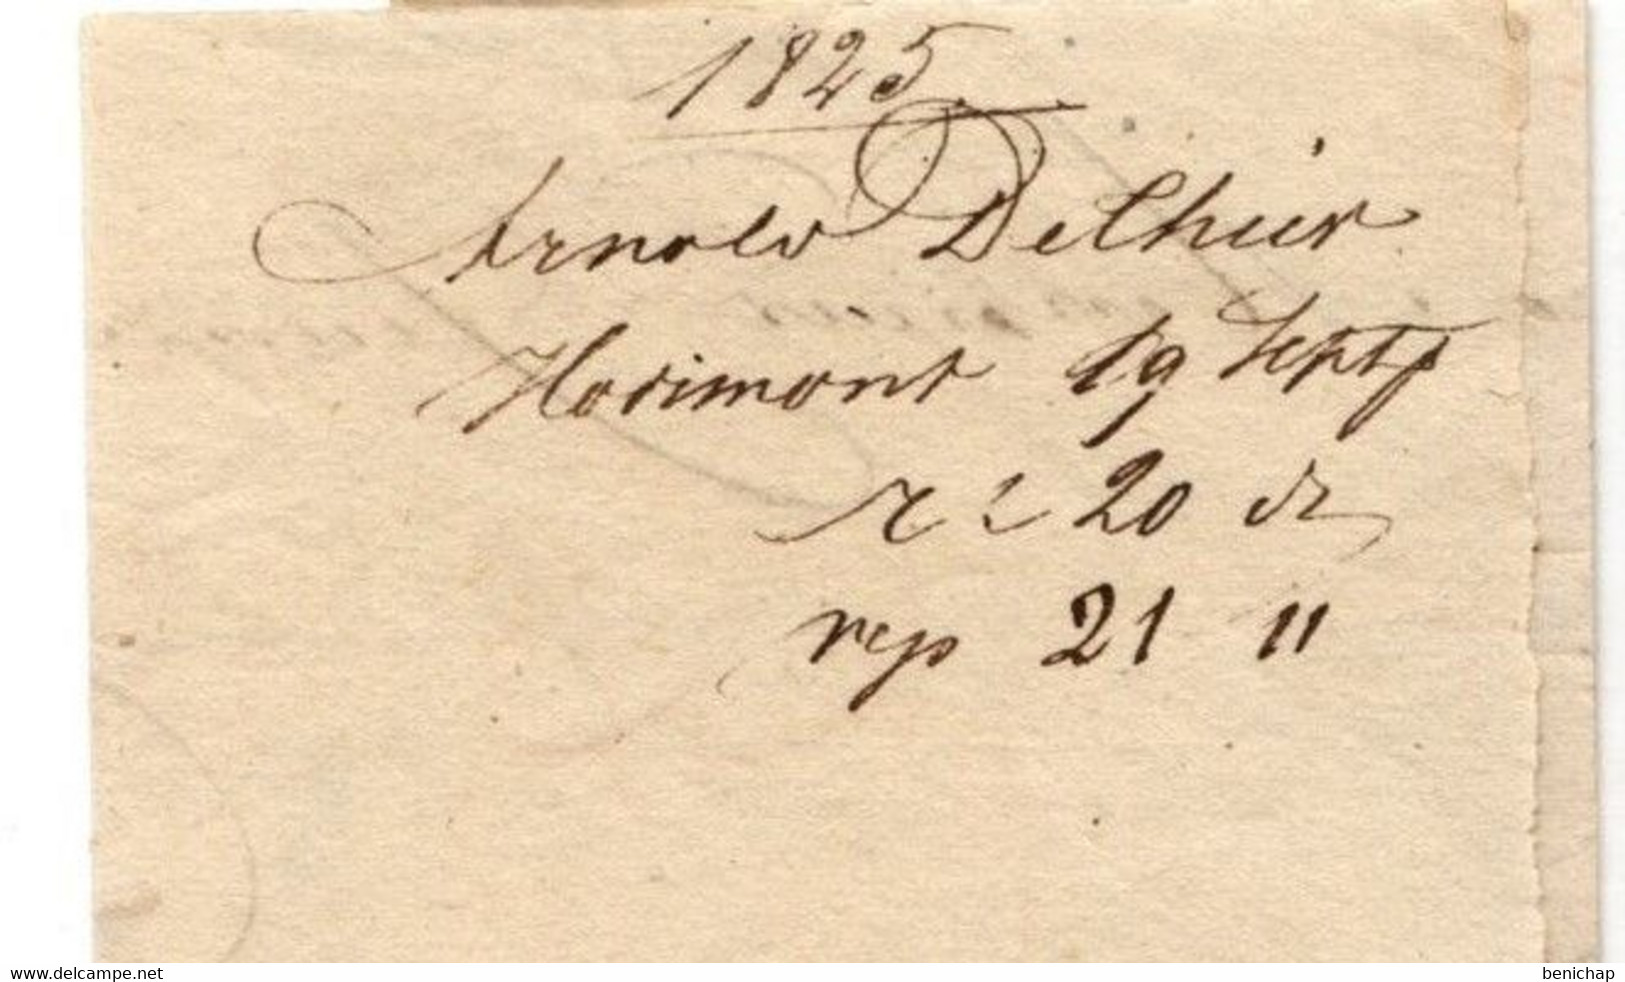 1825
Arnold Delhier
Hodimont 19 Septb
r l 20 dr
rep 21 11
www.delcampe.net
benichap